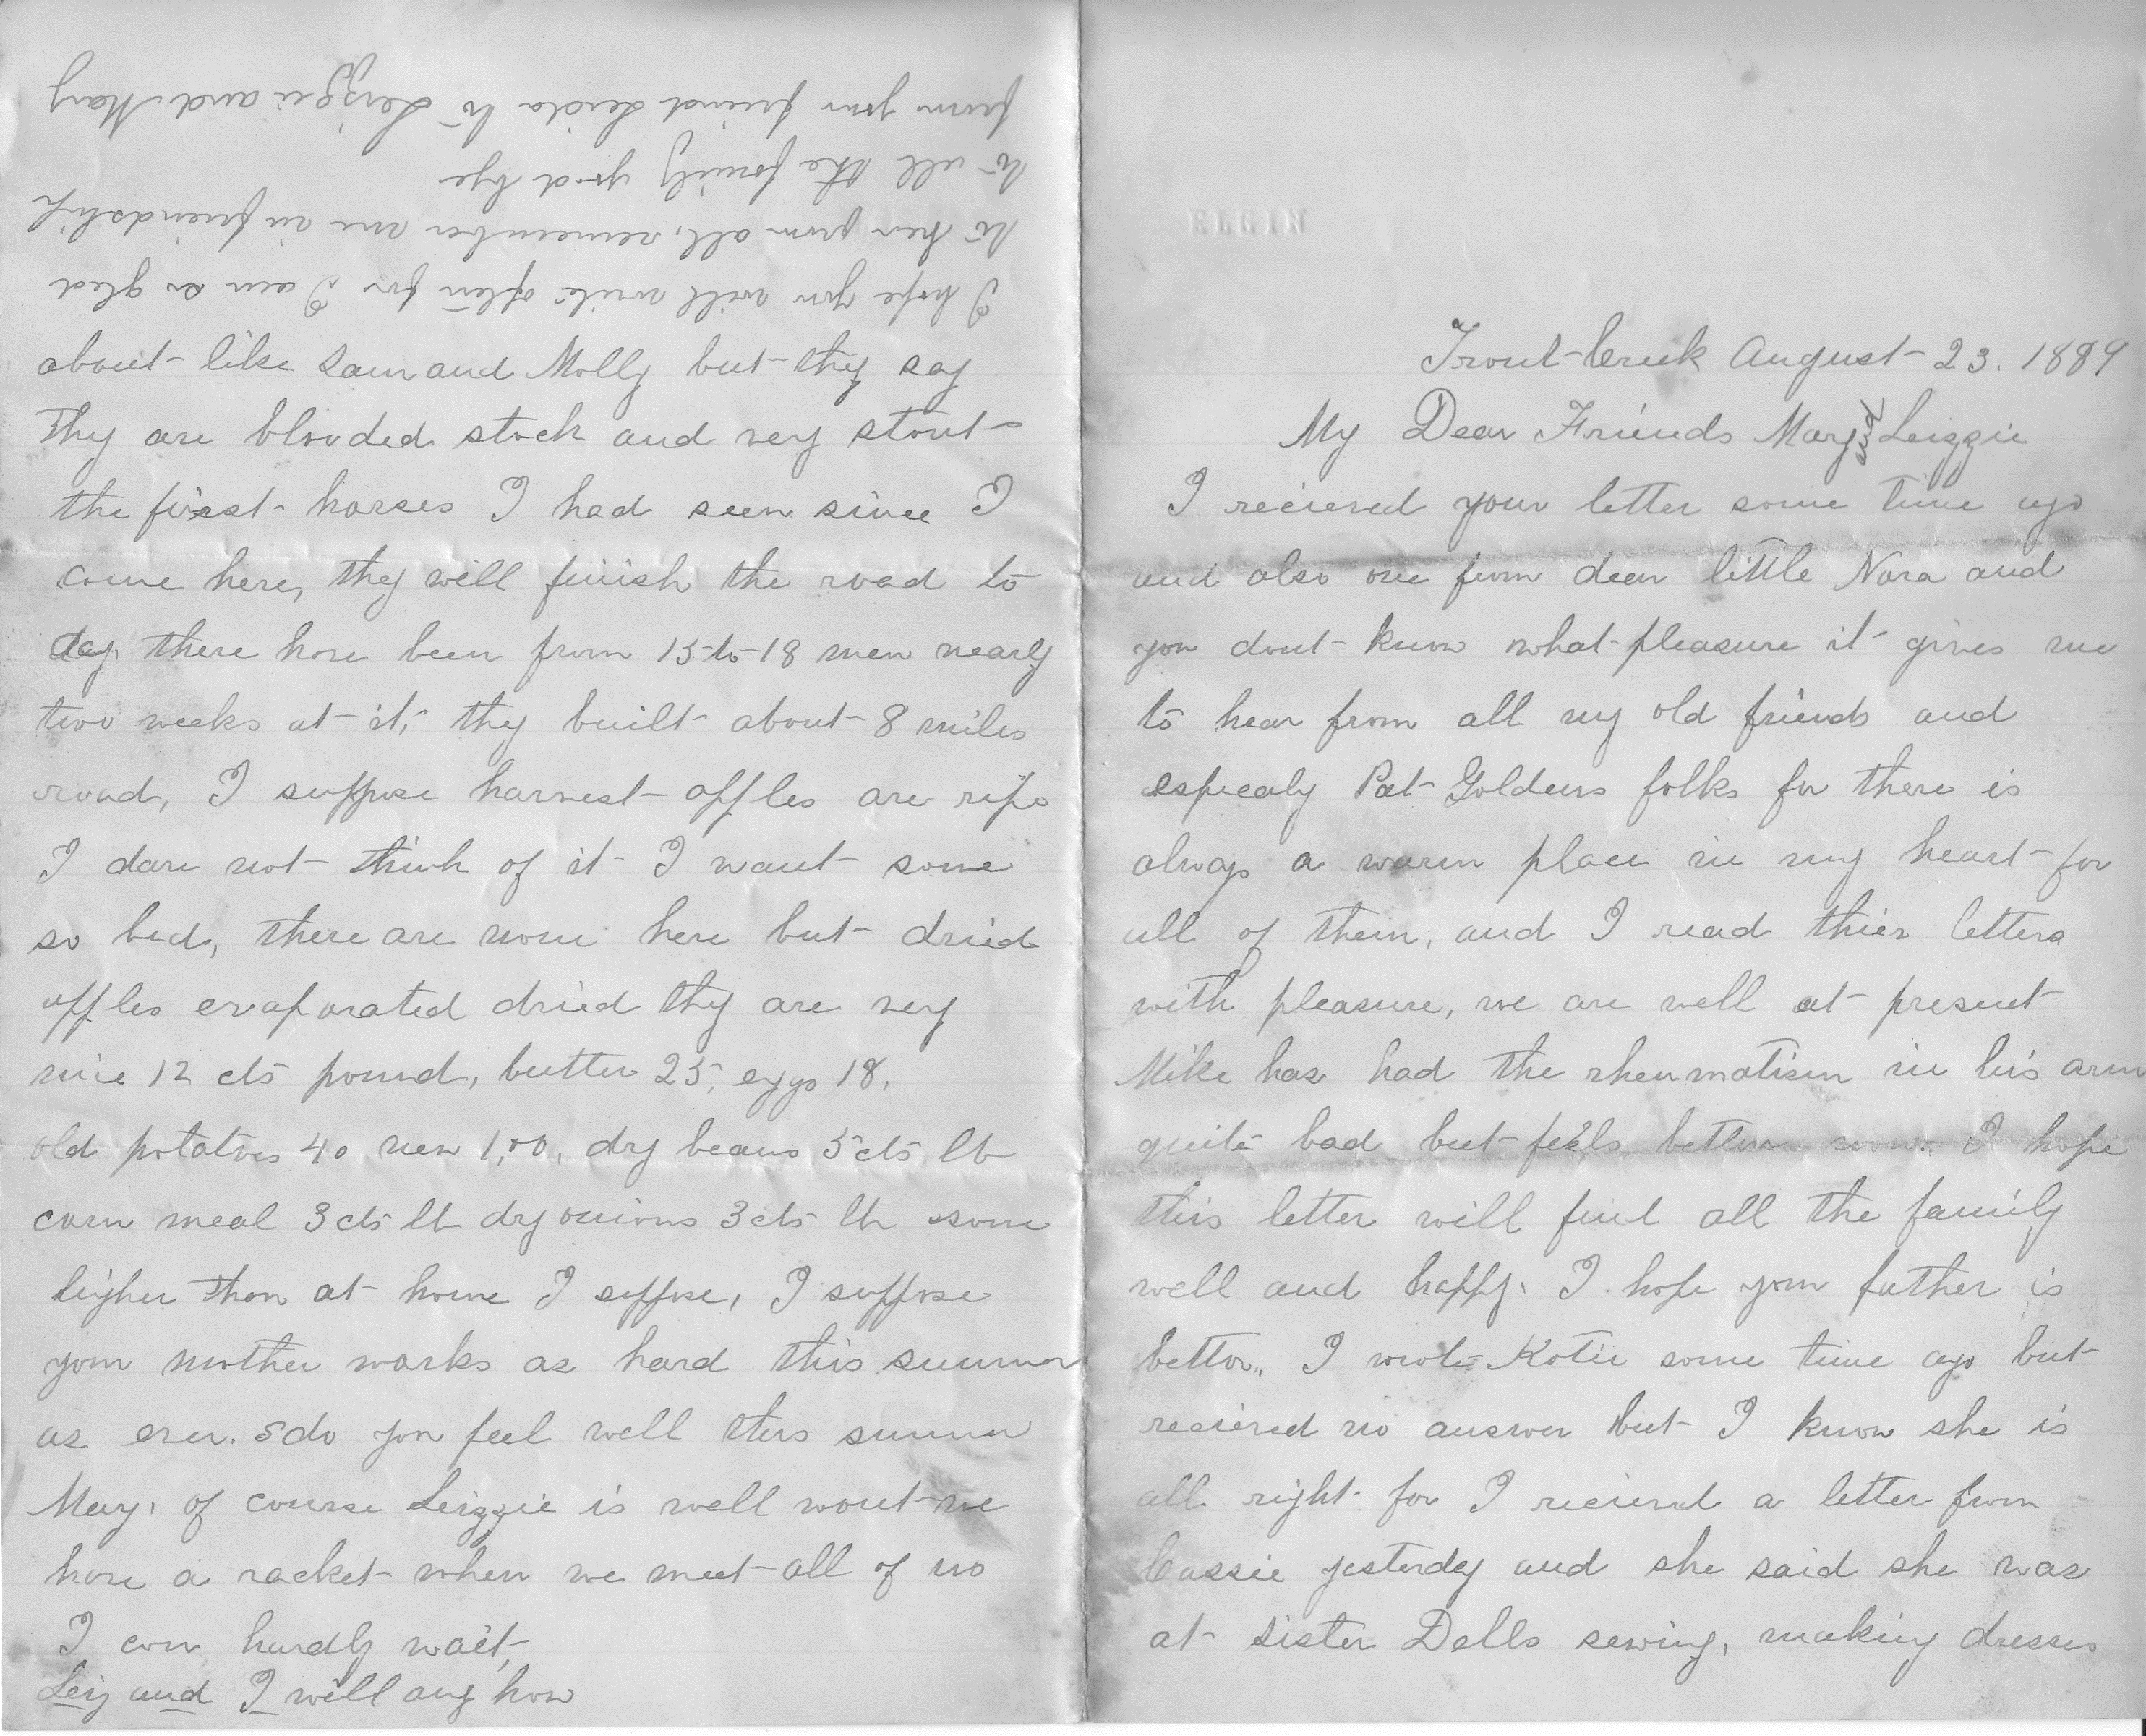 ELGIN
Trout Creek August 23. 1889
My Dear Friends Mary and Leizzie
I recieved your letter some time ago
and also one from dear little Nora and
you dont know what pleasure it gives me
to hear from all my old friends and
especaly Pat Goldens folks for there is
always a warm place in my heart for
all of them, and I read thier letters
with pleasure, we are well at present
Mike has had the rheumatism in his arm
quite bad but feels better now. I hope
this letter will find all the family
well and happy. I hope your father is
better,, I wrote Katie some time ago but
recieved no answer but I know she is
all right for I recieved a letter from
Cassie yesterdy and she said she was
at sister Dells sewing, making dresses
about like Sam and Molly but they say
they are blooded stock and very stout
the first horses I had seen since I
come here, they will finish the road to
day. there have been from 15 to 18 men nearly
two weeks at it, they built about 8 miles
road, I suppose harvest apples are ripe
I dare not think of it I want some
so bad, there are none here but dried
apples evaporated dried they are very
nice 12 cts pound, butter 25, eggs 18,
old potatoes 40 new 1,00, dry beans 5 cts lb
corn meal 3 cts lb dry onions 3 cts lb some
higher than at home I suppose, I suppose
your mother works as hard this summer
as ever. do you feel well this summer
Mary, of course Leizzie is well wont we
have a racket when we meet all of us
I can hardly wait,
Leiz and I will any how
I hope you will write often for I am so glad
to her from all, remember me in friendship
to all the family good bye
from your friend Leida to Leizzie and Mary